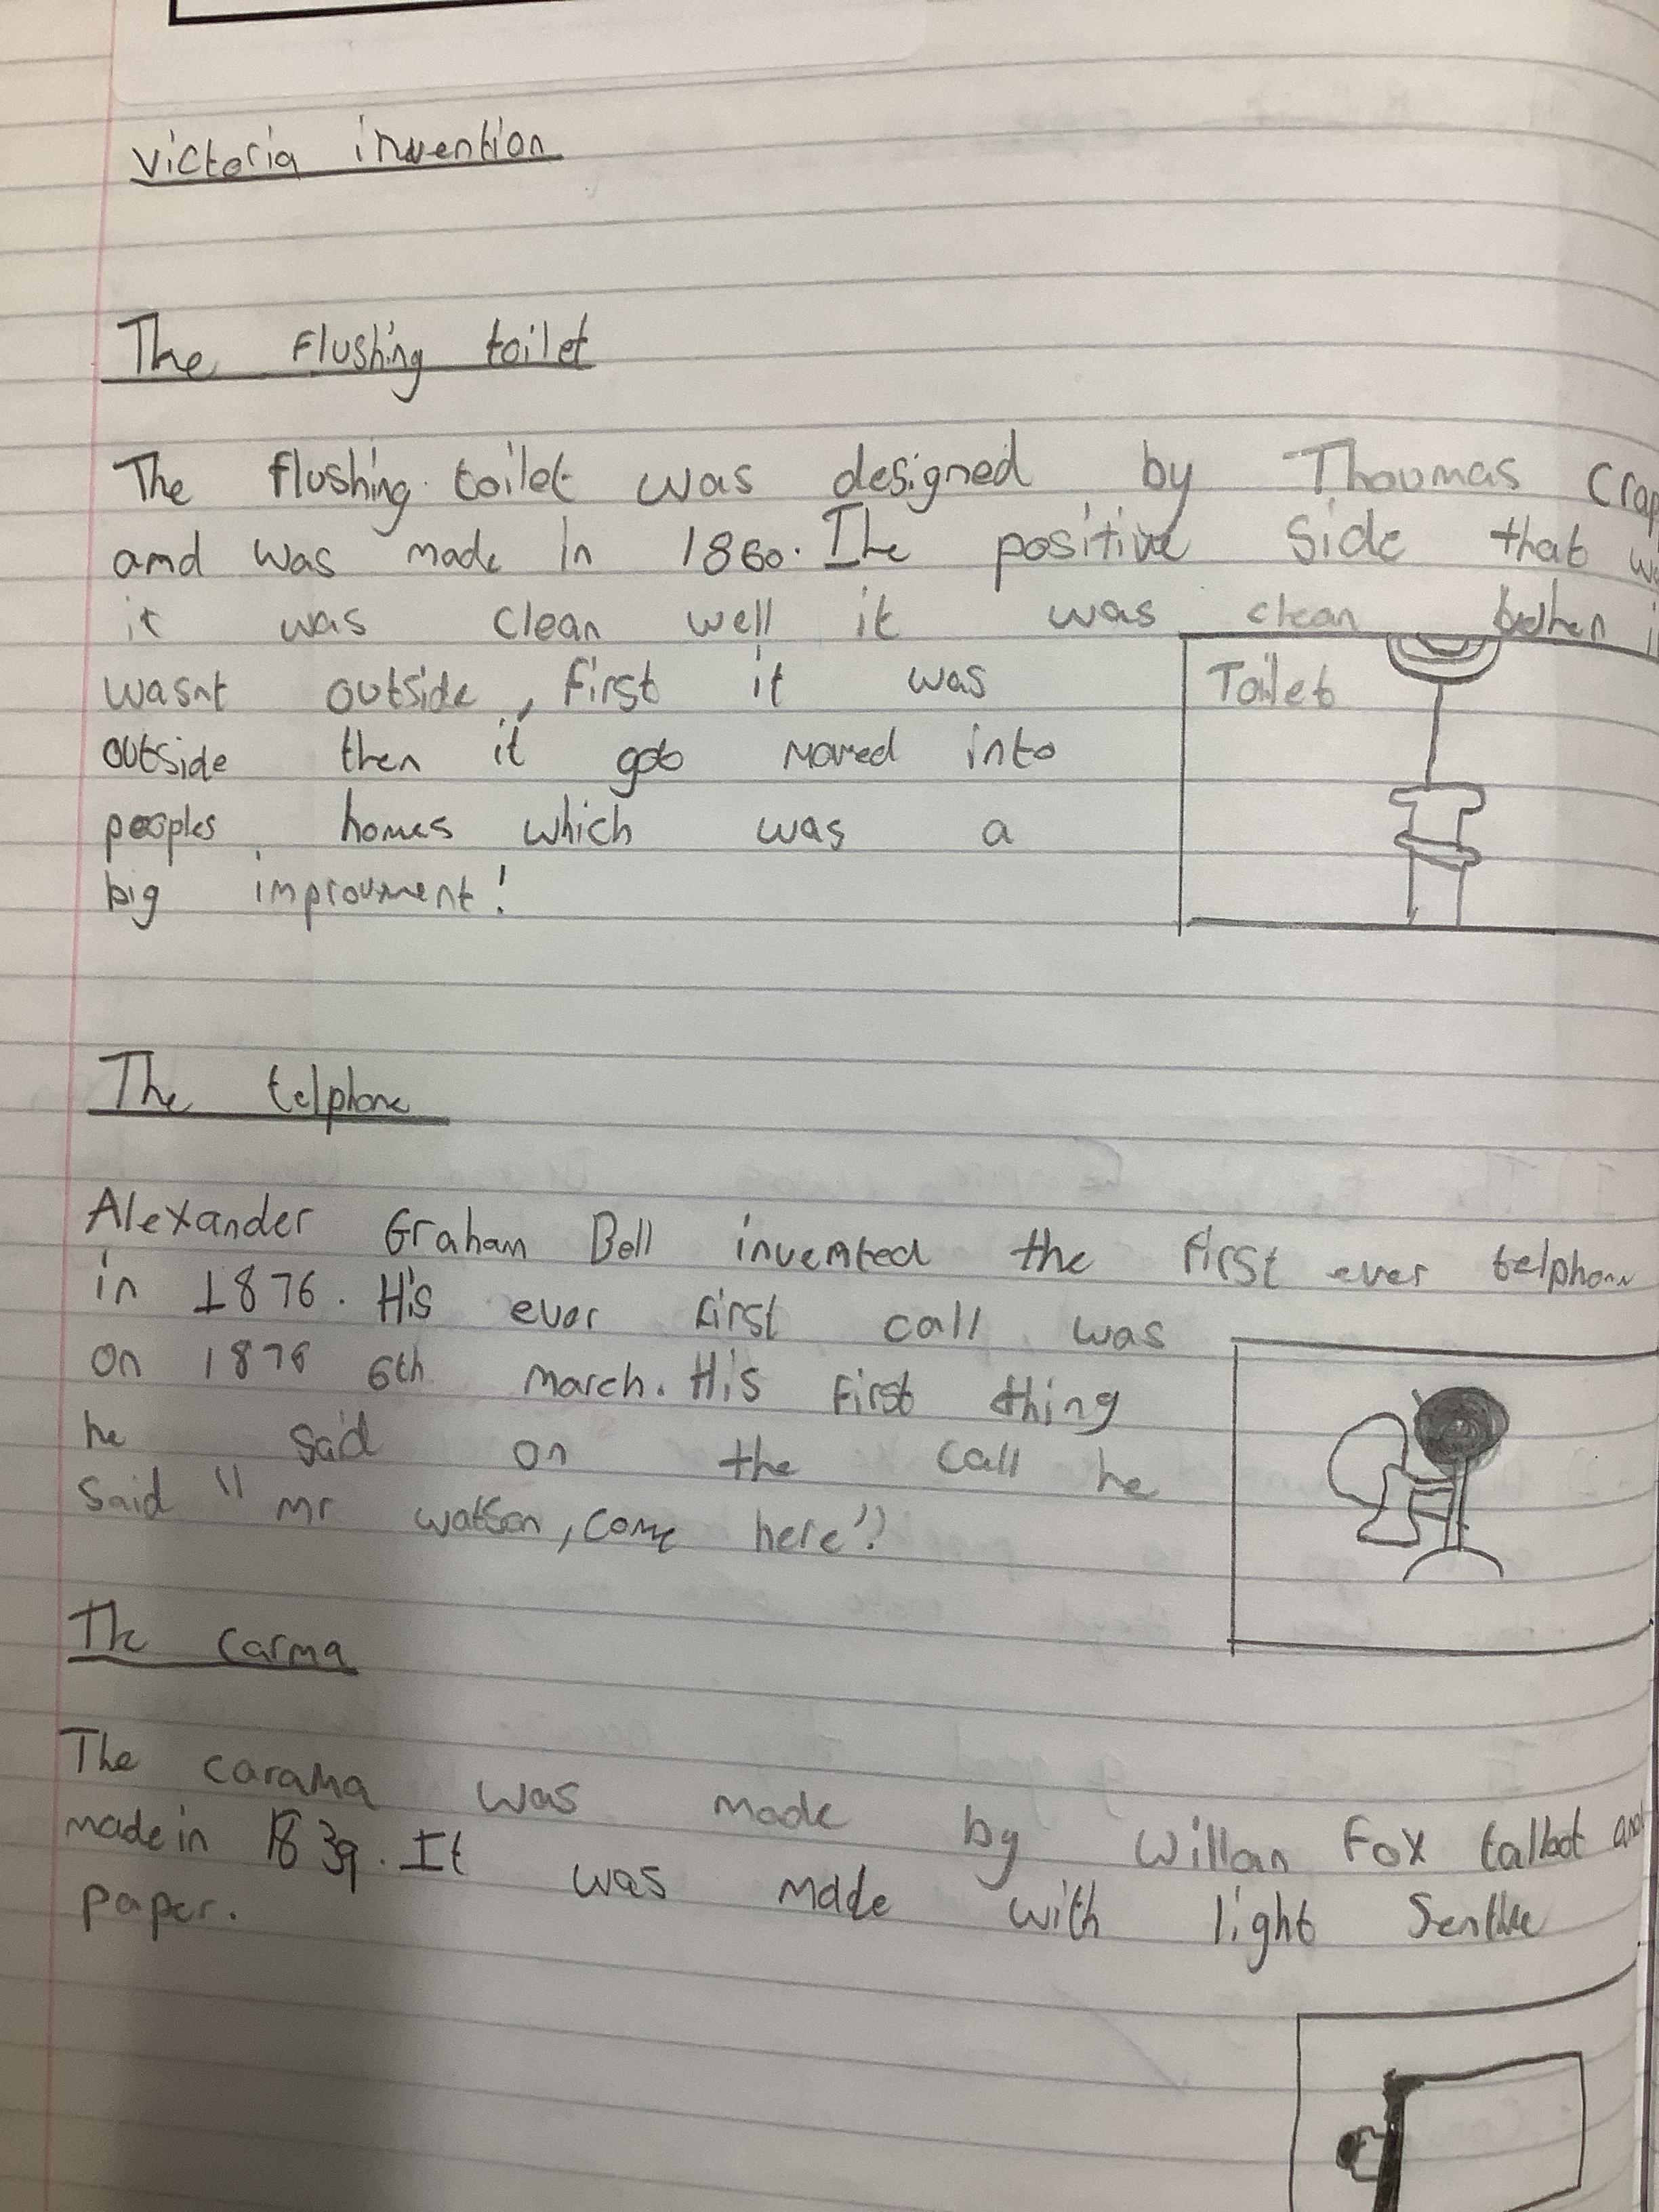 victoria invention
The flushing toilet
The flushing toilet was designed by Thoumas Crap
and was made in 1860. The positive side that wa
it was clean well it was clean when i
wasnt outside, first it was
outside then it got moved into
peoples homes which was a
big improvment!
Toilet
The telphone
Alexander Graham Bell invented the first ever telphone
in 1876. His ever first call was
on 1876 6th march. His first thing
he said on the call he
said "mr watson, come here"?
The carma
The carama was made by Willan Fox talbot and
made in 1839. It was made with light
paper.